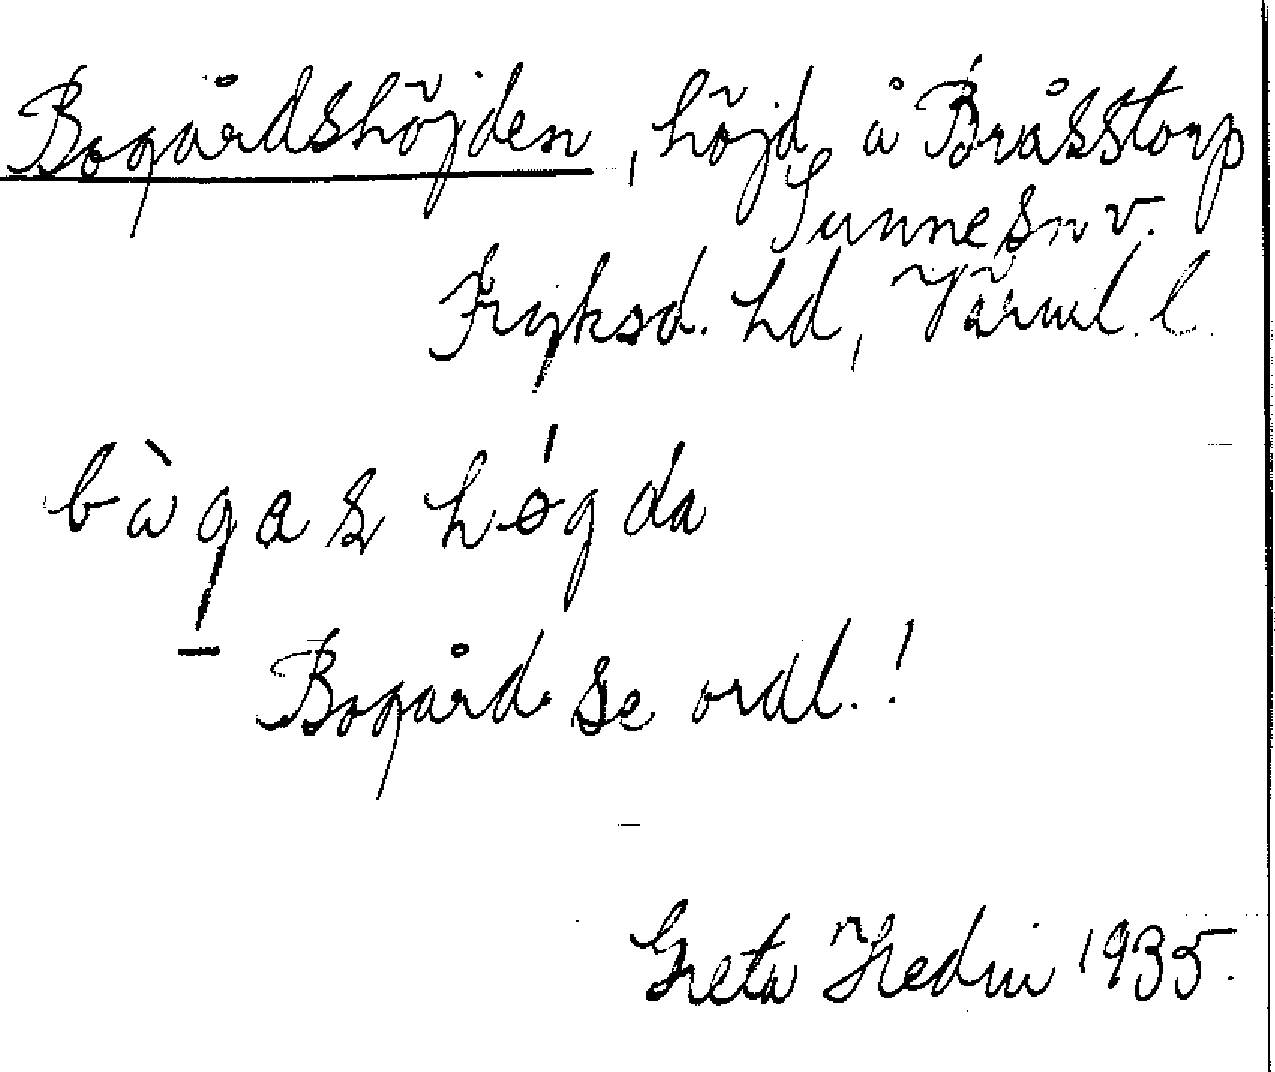 Bogårdshöjden, höjd å Bråsstorp
Sunne sn v.
Fryksd. hd, Värml. l.
bàgas høgda
Bogård se ordl.!
Greta Hedin 1935.